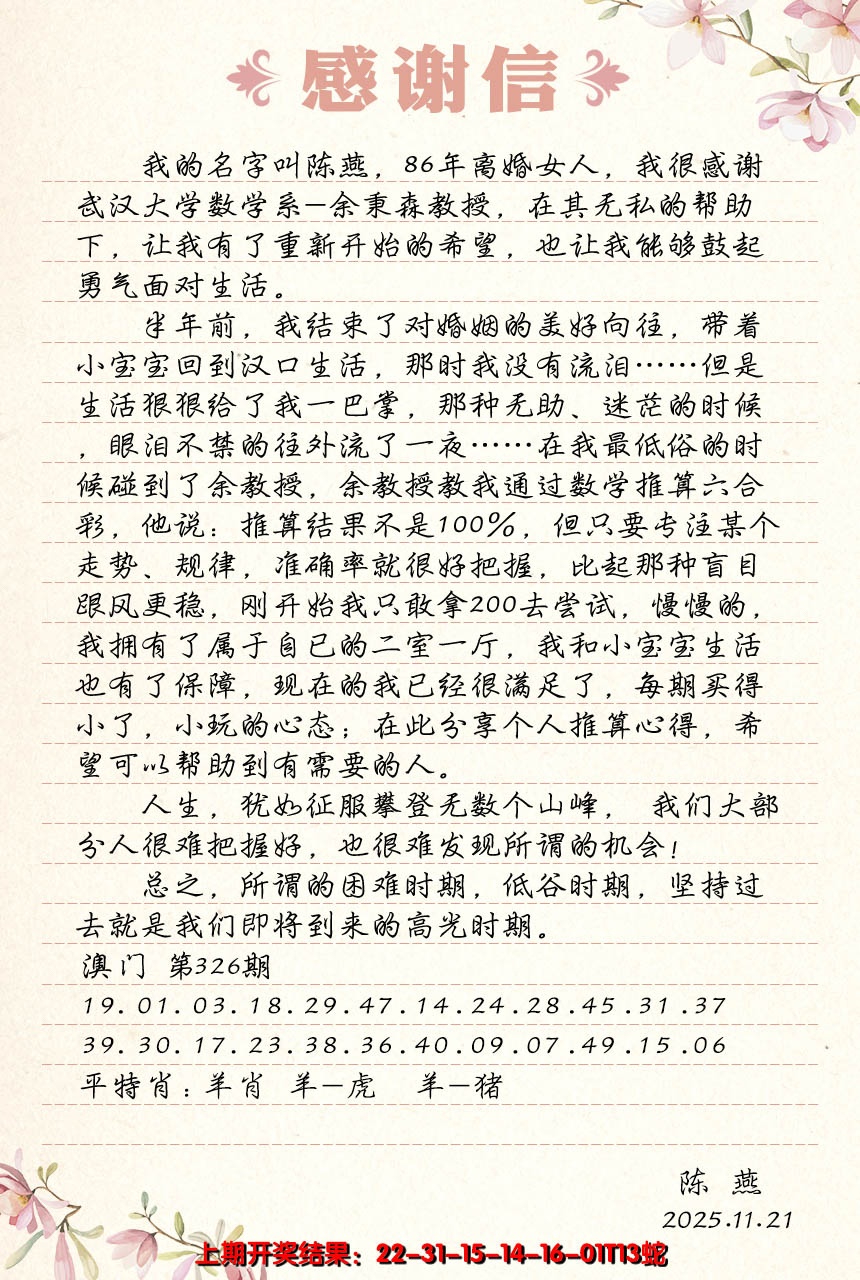 感谢信
我的名字叫陈燕，86年离婚女人，我很感谢
武汉大学数学系—余秉森教授，在其无私的帮助
下，让我有了重新开始的希望，也让我能够鼓起
勇气面对生活。
半年前，我结束了对婚姻的美好向往，带着
小宝宝回到汉口生活，那时我没有流泪……但是
生活狠狠给了我一巴掌，那种无助、迷茫的时候
，眼泪不禁的往外流了一夜……在我最低俗的时
候碰到了余教授，余教授教我通过数学推算六合
彩，他说：推算结果不是100%，但只要专注某个
走势、规律，准确率就很好把握，比起那种盲目
跟风更稳，刚开始我只敢拿200去尝试，慢慢的，
我拥有了属于自已的二室一厅，我和小宝宝生活
也有了保障，现在的我已经很满足了，每期买得
小了，小玩的心态；在此分享个人推算心得，希
望可以帮助到有需要的人。
人生，犹如征服攀登无数个山峰， 我们大部
分人很难把握好，也很难发现所谓的机会！
总之，所谓的困难时期，低谷时期，坚持过
去就是我们即将到来的高光时期。
澳门 第326期
19.01.03.18.29.47.14.24.28.45.31.37
39.30.17.23.38.36.40.09.07.49.15.06
平特肖：羊肖 羊—虎 羊—猪
陈 燕
2025.11.21
上期开奖结果：22-31-15-14-16-01T13蛇